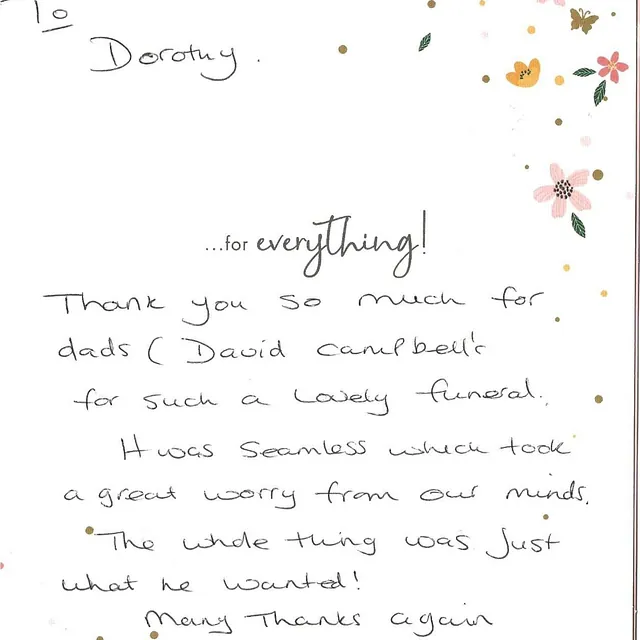 To
Dorothy.
...for everything!
Thank you so much for
dads ( David Campbell's
for such a Lovely funeral.
It was seamless which took
a great worry from our minds.
The whole thing was just
what he wanted!
Many Thanks again